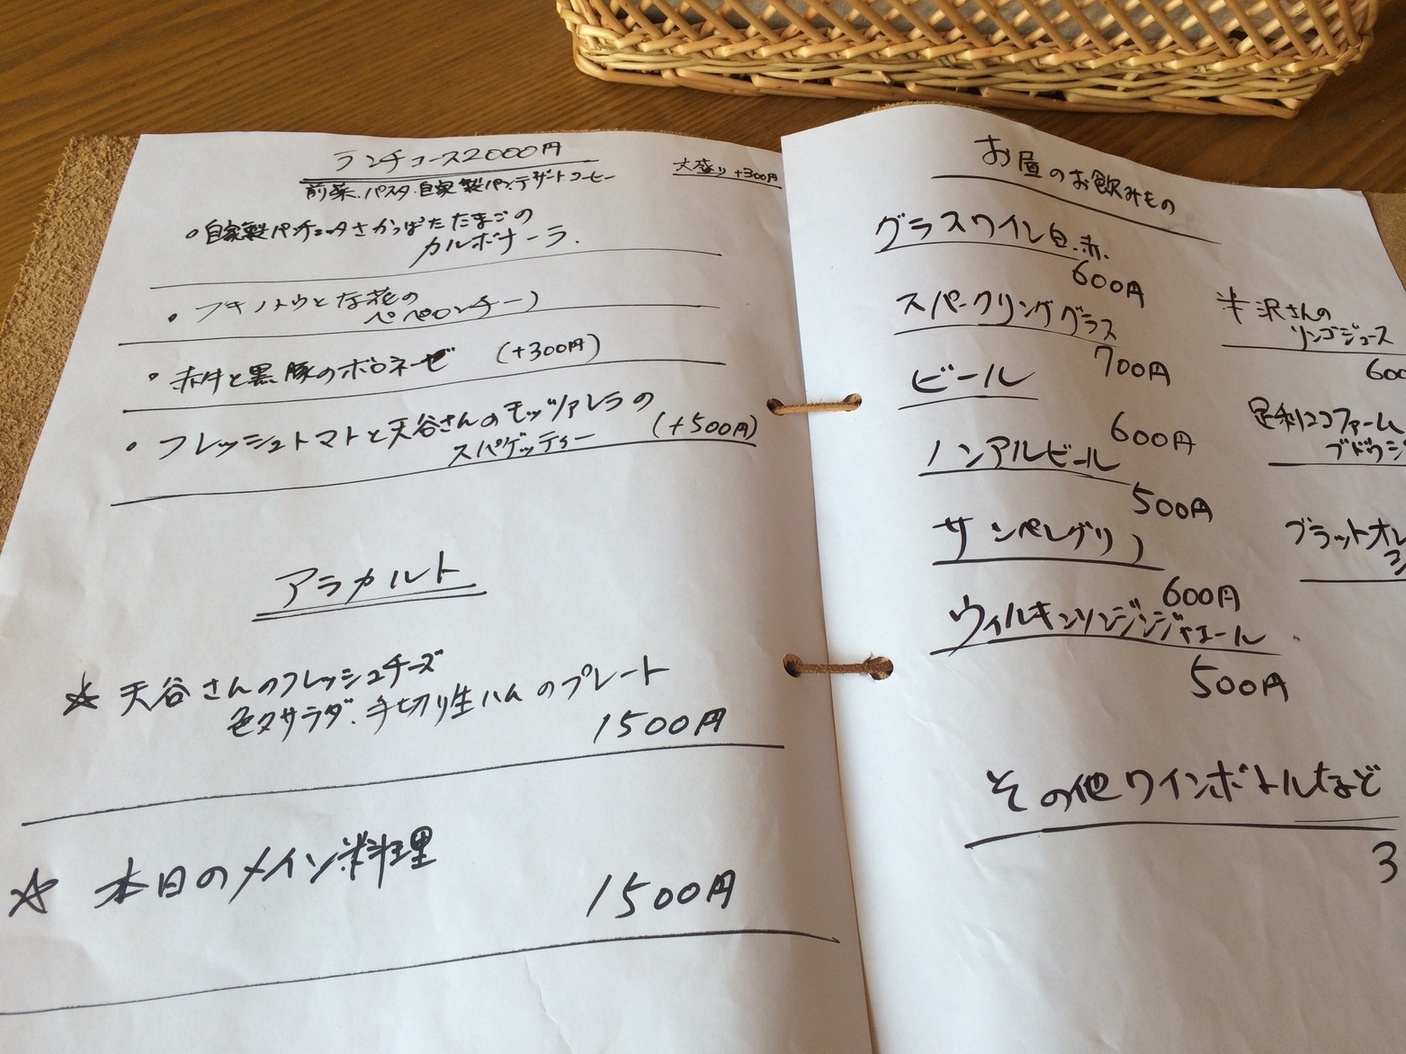 ランチコース2000円
大盛り+300円
前菜、パスタ、自家製パン、デザートコーヒー
・自家製パンチェッタさかっぱたたまごの
カルボナーラ.
・フキノトウとな花の
ペペロンチーノ
・赤牛と黒豚のボロネーゼ (+300円)
・フレッシュトマトと天谷さんのモッツァレラの
スパゲッティー (+500円)
アラカルト
☆ 天谷さんのフレッシュチーズ
色々サラダ、手切り生ハムのプレート
1500円
☆ 本日のメイン料理
1500円
お昼のお飲みもの
グラスワイン白.赤.
600円
スパークリンググラス
700円
ビール
600円
ノンアルビール
500円
サンペレグリノ
600円
ウィルキンソンジンジャエール
500円
沢さんの
リンゴジュース
600
足利ココファーム
ブドウジ
ブラットオレ
その他ワインボトルなど
3